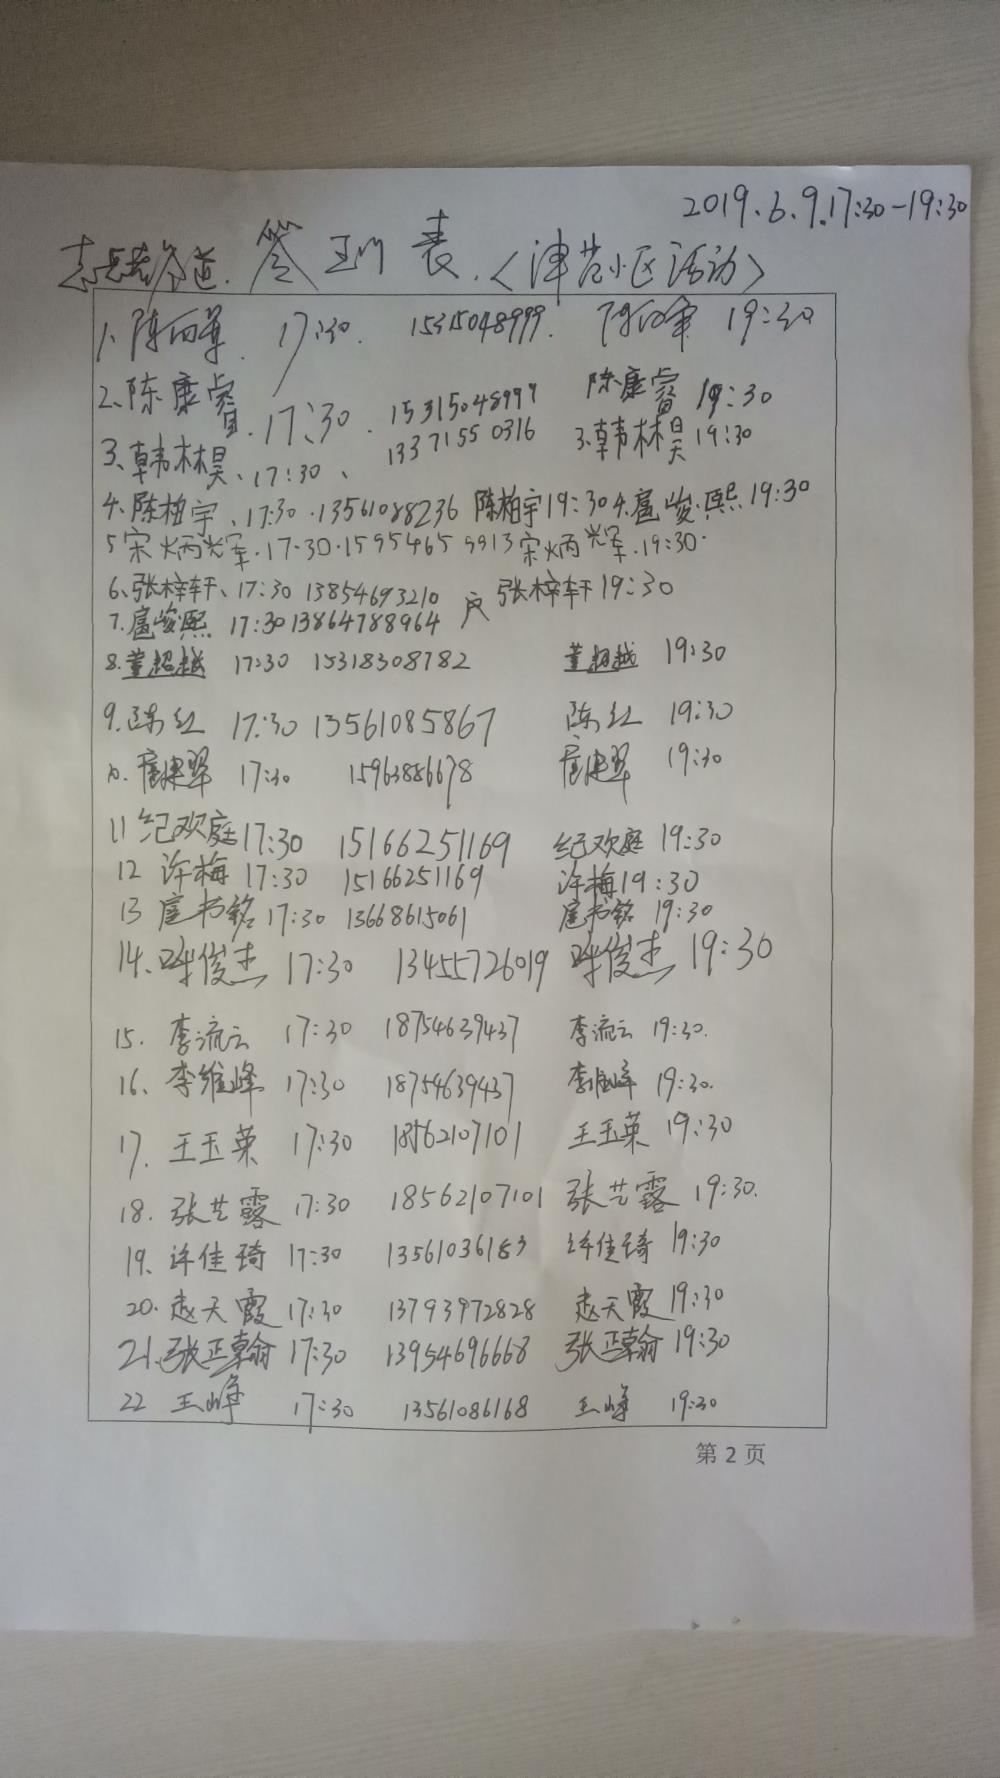 2019.6.9.17:30-19:30
签到表.<津苑小区活动>
1、陈 17:30. 15315048999. 陈 19:30
2、陈康睿. 17:30. 15315048999 陈康睿 19:30
3、韩林昊、17:30、 13371550316 3、韩林昊 19:30
4、陈柏宇、17:30.13561088236 陈柏宇19:30 4.扈峻熙 19:30
5 宋炳 .17.30.15954659913 宋炳 .19:30.
6、张梓轩、17:30 13854693210 张梓轩19:30
7.扈峻熙 17:30 13864788964
8.董超越 17:30 15318308782 董超越 19:30
9.陈红 17:30 13561085867 陈红 19:30
10.扈建翠 17:30 15963886678 扈建翠 19:30
11 纪欢庭 17:30 15166251169 纪欢庭 19:30
12 许梅 17:30 15166251169 许梅 19:30
13 扈书铭 17:30 13668615061 扈书铭 19:30
14、俊杰 17:30 13455726019 俊杰 19:30
15. 李流云 17:30 18754639437 李流云 19:30.
16、李维峰 17:30 18754639437 李维峰 19:30.
17. 王玉英 17:30 18562107101 王玉英 19:30
18. 张艺露 17:30 18562107101 张艺露 19:30.
19、许佳琦 17:30 13561036183 许佳琦 19:30
20. 赵天霞 17:30 13793972828 赵天霞 19:30
21.张正翰 17:30 13954696668 张正翰 19:30
22 王峰 17:30 13561086168 王峰 19:30
第 2 页